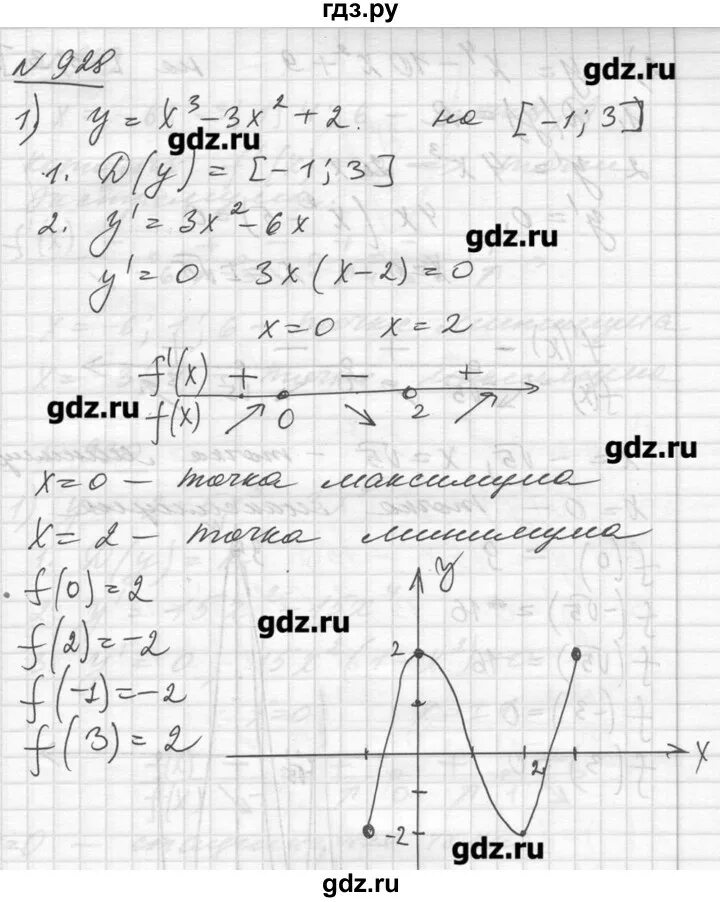 гдз.ру
N 928
gdz.ru
1) y = x³ - 3x² + 2. на [-1; 3]
gdz.ru
1. D(y) = [-1; 3]
2. y' = 3x² - 6x
gdz.ru
y' = 0 3x(x-2) = 0
x=0 x=2
f'(x) + - +
f(x) ↗ 0 ↘ 2 ↗
gdz.ru
gdz.ru
x=0 - точка максимума
x=2 - точка минимума
f(0) = 2
f(2) = -2
f(-1) = -2
f(3) = 2
gdz.ru
y
2
2
x
-2
gdz.ru
gdz.ru